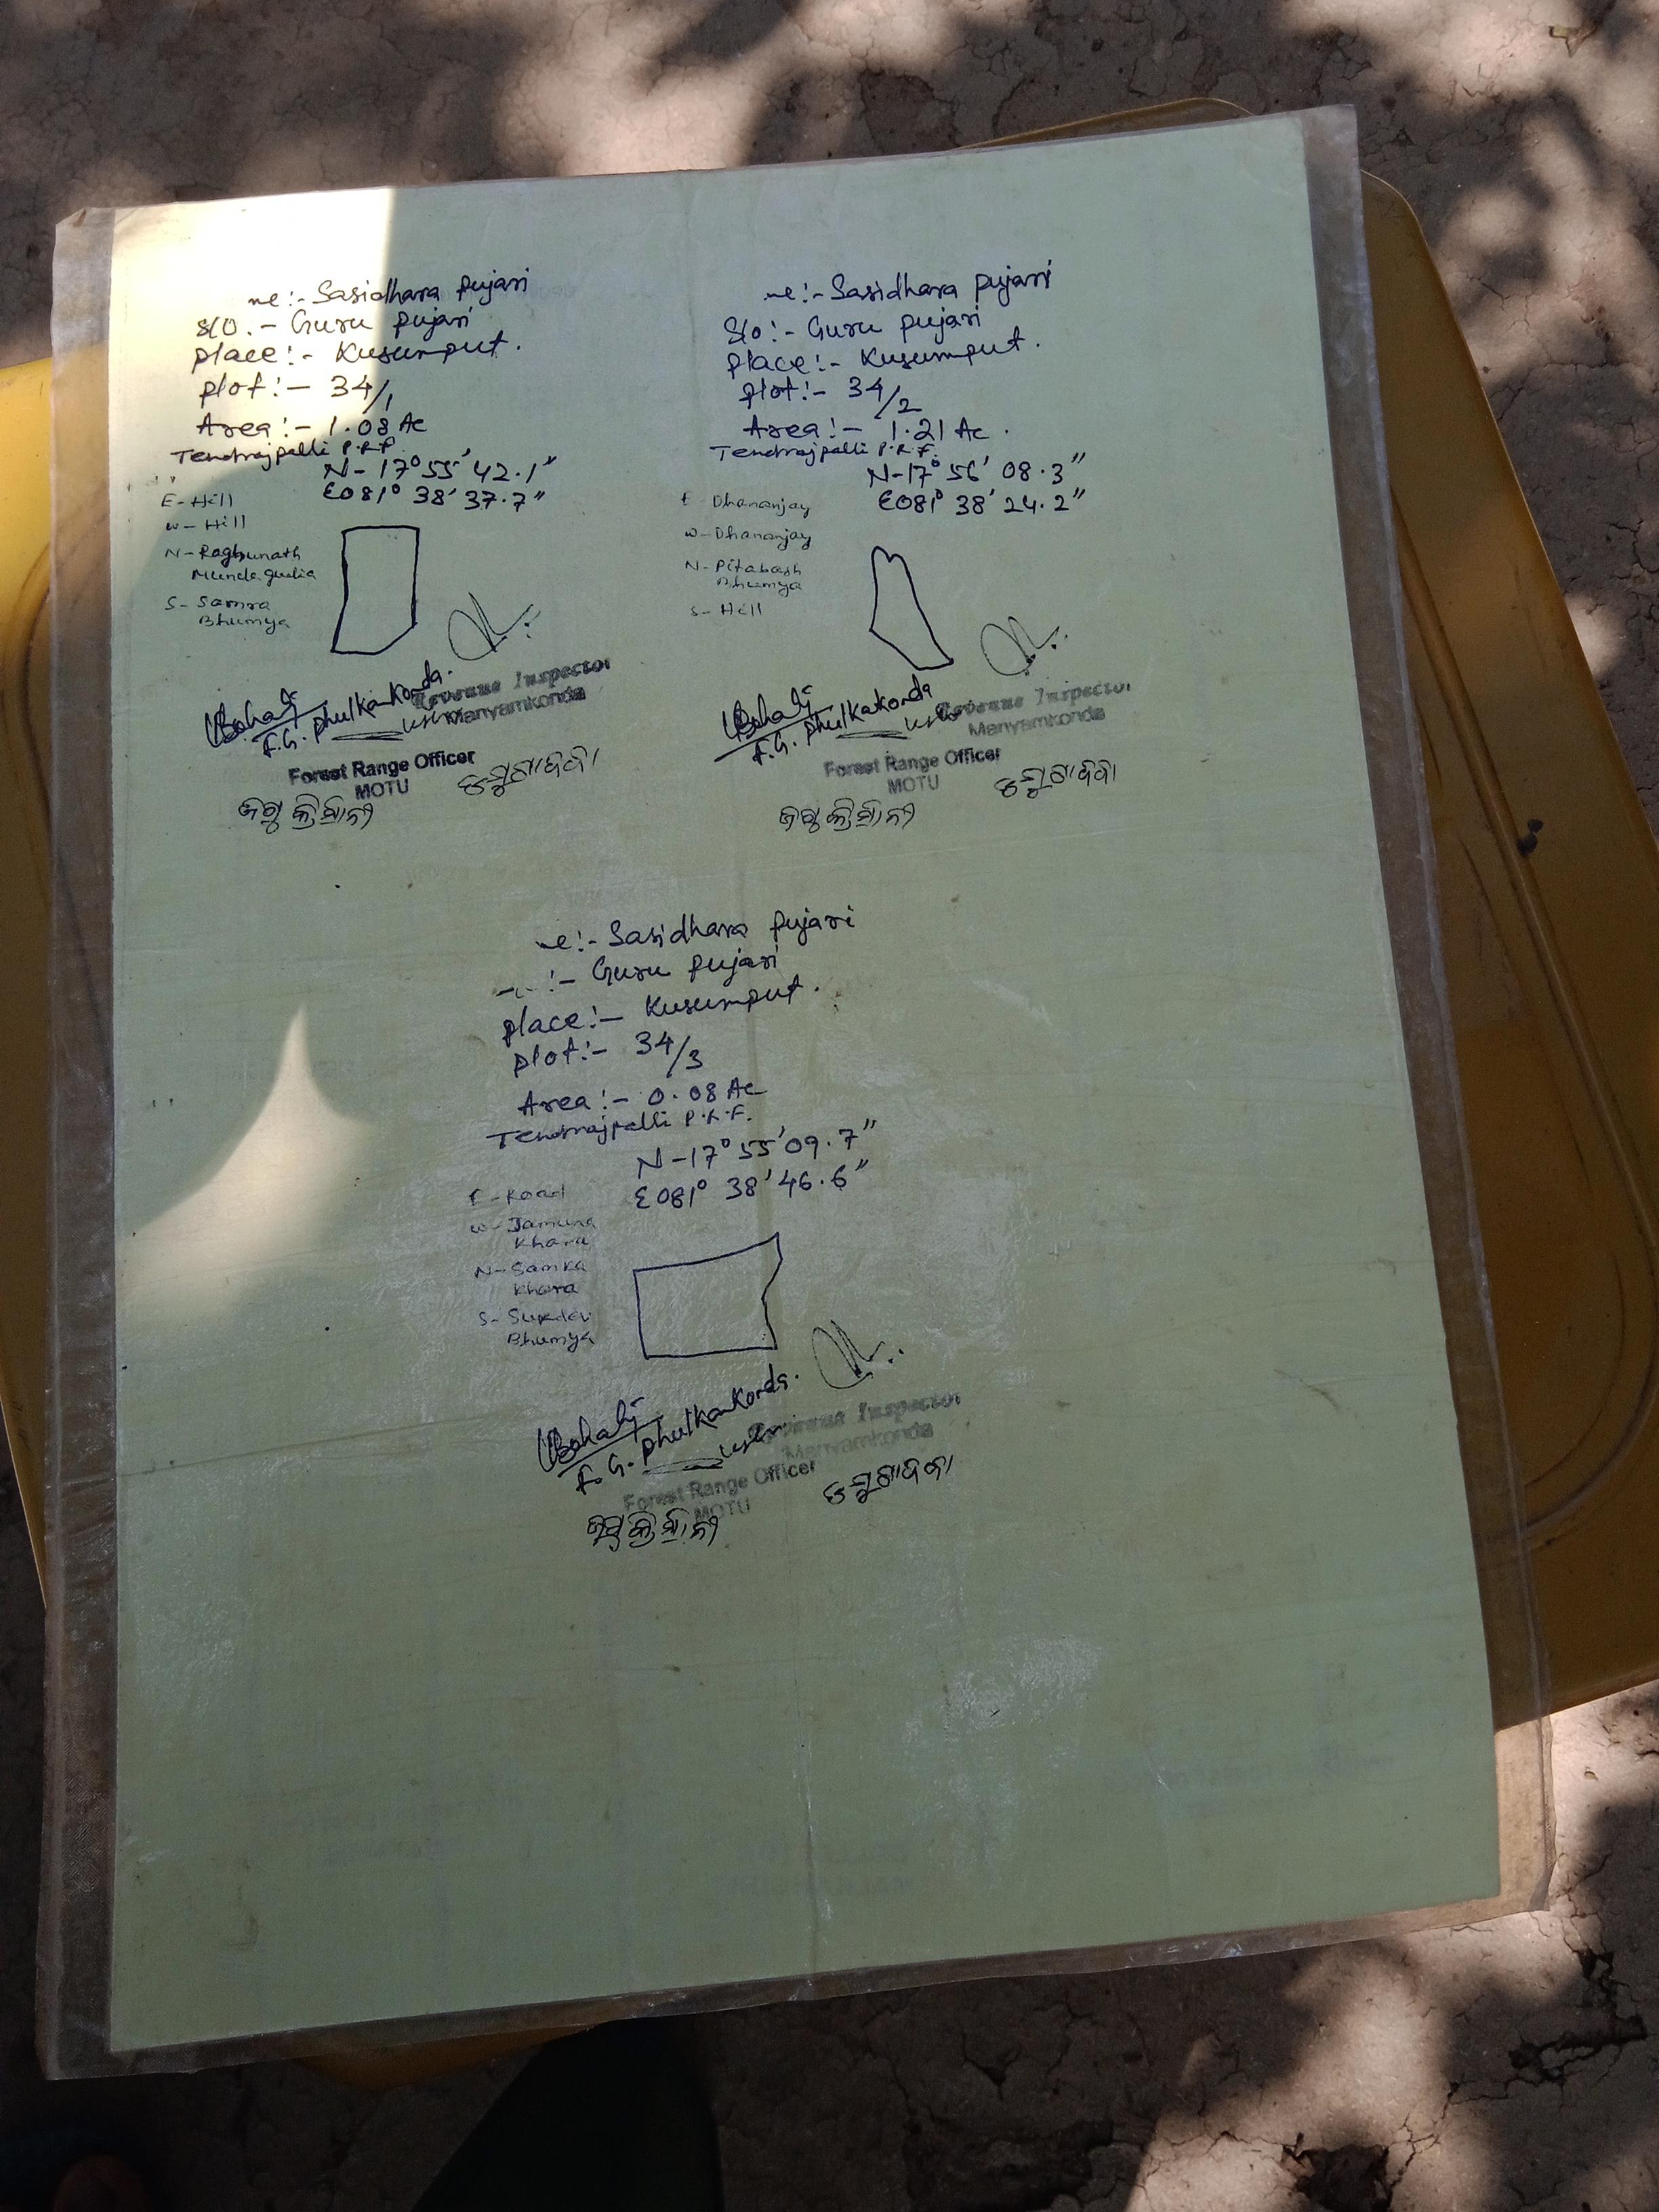 me:- Sasidhara pujari
S/O.- Guru pujari
place:- Kusumput.
plot:- 34/1
Area:- 1.08 Ac
Tendrajpalli P.R.F
N-17°55'42.1"
E081° 38'37.7"
E-Hill
W-Hill
N-Raghunath
Mundagudia
S-Samra
Bhumya
F.G. Phulkankonda.
Revenue Inspector
Manyamkonda
Forest Range Officer
MOTU
me:- Sasidhara pujari
S/o:- Guru pujari
place:- Kusumput.
plot:- 34/2
Area:- 1.21 Ac.
Tendrajpalli P.R.F.
N-17°56'08.3"
E081° 38'24.2"
E Dhananjay
W-Dhananjay
N-Pitabash
Bhumya
S-Hill
F.G. Phulkakonda
Revenue Inspector
Manyamkonda
Forest Range Officer
MOTU
me:- Sasidhara pujari
:- Guru pujari
place:- Kusumput.
plot:- 34/3
Area:- 0.08 Ac
Tendrajpalli P.R.F.
N-17°55'09.7"
E081° 38'46.6"
E-Road
W-Jamuna
Khara
N-Samra
Khara
S-Sukdev
Bhumya
F.G. Phulkankonda.
Revenue Inspector
Manyamkonda
Forest Range Officer
MOTU